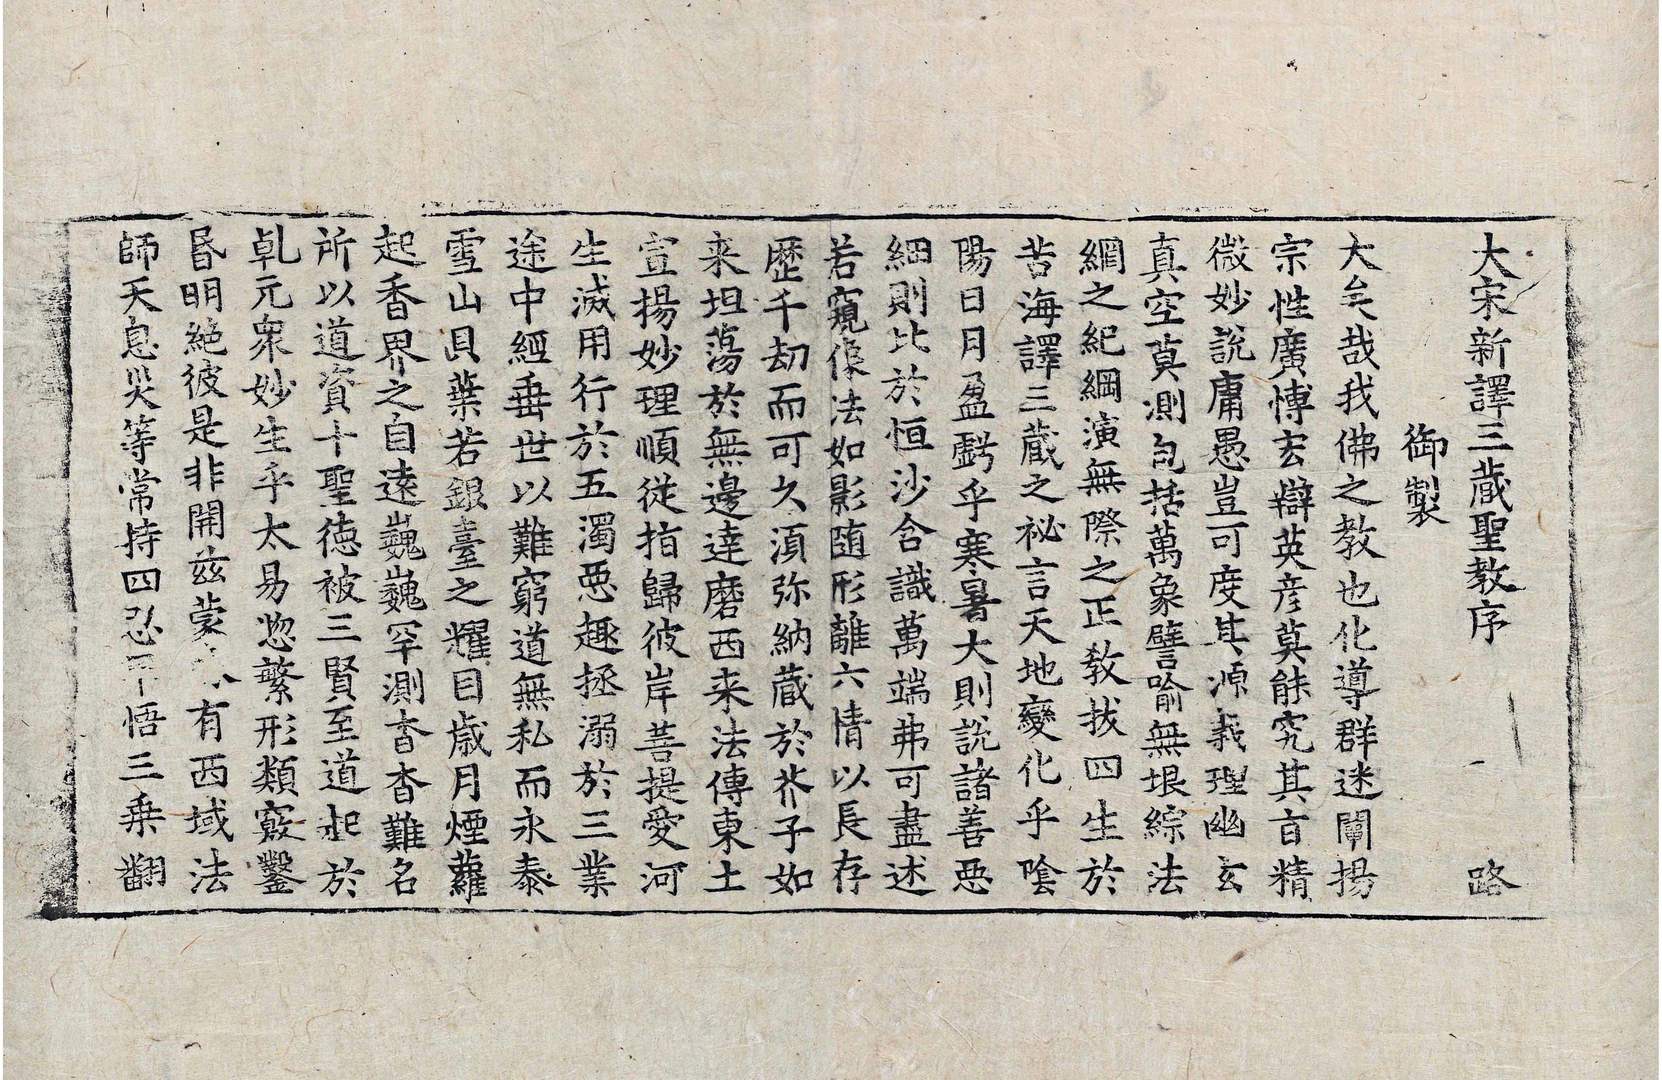 大宋新譯三蔵聖教序 路
御製
大矣㢤我佛之教也化導群迷闡揚
宗性廣愽玄辯英彦莫能究其旨精
微妙說庸愚豈可度其源義理幽玄
真空莫測包括萬象譬喻無垠綜法
網之紀綱演無際之正教拔四生於
苦海譯三蔵之祕言天地變化乎陰
陽日月盈虧乎寒暑大則說諸善惡
細則比於恒沙含識萬端弗可盡述
若窺像法如影随形離六情以長存
歷千刼而可久湏弥納蔵於芥子如
来坦蕩於無邊達磨西来法傳東土
宣揚妙理順從指歸彼岸菩提愛河
生滅用行於五濁惡趣拯溺於三業
途中經垂世以難窮道無私而永泰
雪山貝葉若銀臺之耀目歲月煙蘿
起香界之自遠巍巍罕測杳杳難名
所以道資十聖德被三賢至道起於
乹元衆妙生乎太易惣繁形類竅鑿
昏明絶彼是非開兹蒙有西域法
師天息災等常持四忍悟三乗翻